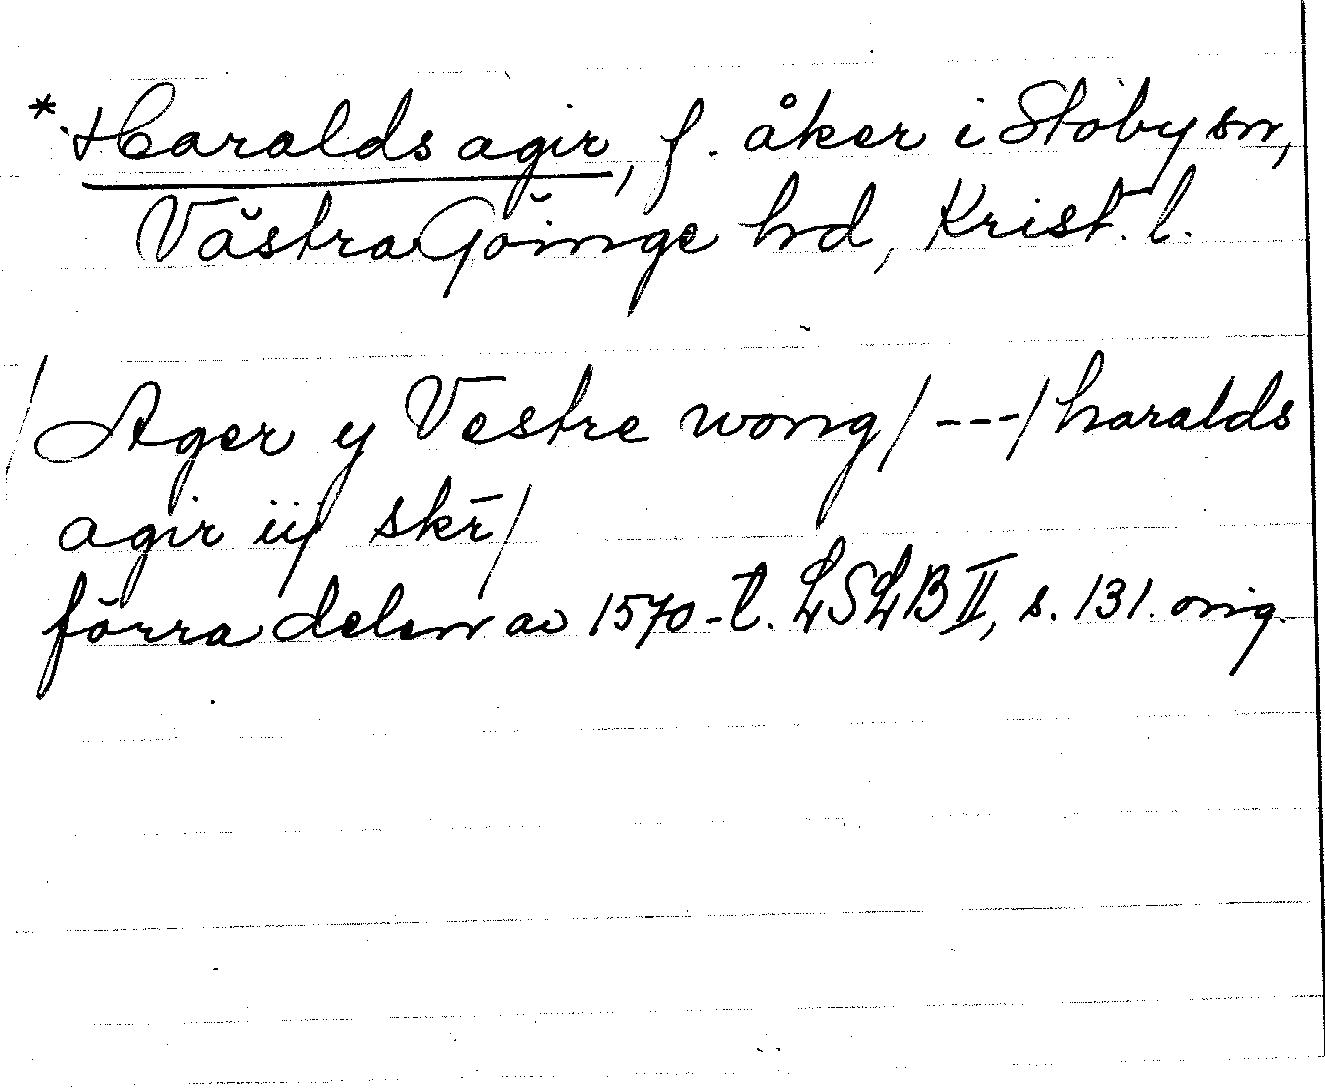 * Haralds agir, f. åker i Stoby sn,
Västra Göinge hd, Krist. l.
/Ager y Vestre wong/---/haralds
agir iij skr̄/
förra delen av 1570-t. LSLB II, s. 131. orig.